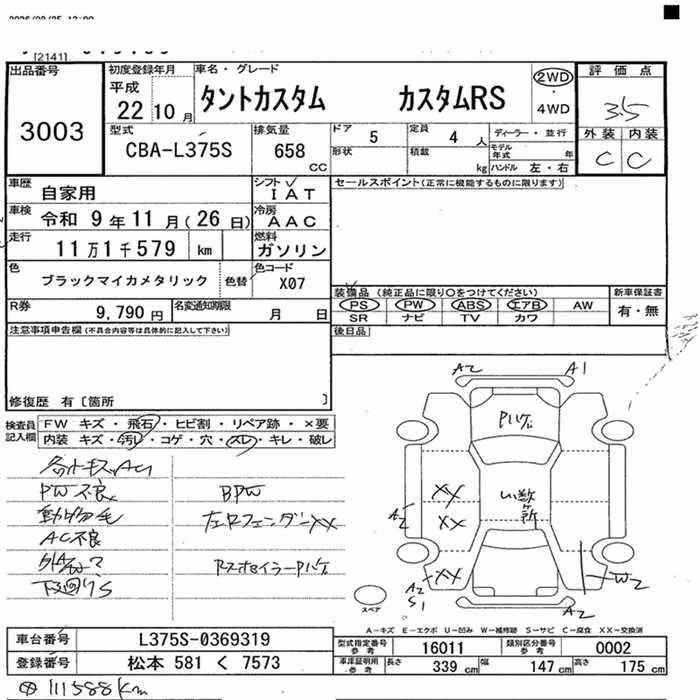 [2141]
出品番号
3003
初度登録年月
平成
22 10月
車名・グレード
タントカスタム カスタムRS
2WD
・
4WD
評価点
3.5
外装 内装
C C
型式
CBA-L375S
排気量
658
CC
ドア 5
定員 4人
ディーラー・並行
形状
積載
kg
モデル年式 年
ハンドル 左・右
車歴
自家用
シフト
IAT
車検
令和 9年11月(26日)
冷房
AAC
走行
11万1千579 km
燃料
ガソリン
色
ブラックマイカメタリック
色替
色コード
X07
R券
9,790円
名変通知期限
月 日
セールスポイント(正常に機能するものに限ります)
装備品 (純正品に限り○をつけてください)
PS PW ABS エアB AW
SR ナビ TV カワ
新車保証書
有・無
後日品
注意事項申告欄(不具合内容等は具体的に記入して下さい)
修復歴 有〔箇所 〕
検査員記入欄
FW キズ・飛石・ヒビ割・リペア跡・×要
内装 キズ・汚レ・コゲ・穴・スレ・キレ・破レ
PW不良
BPW
動物毛
左右フェンダーXX
AC不良
下廻りS
A2 A1
Pハゲ
XX
XX
XX
A2
い数箇所
A2
S1
W2
A2
スペア
A－キズ E－エクボ U－凹み W－補修跡 S－サビ C－腐食 XX－交換済
車台番号
L375S-0369319
登録番号
松本 581 く 7573
型式指定番号参考
16011
類別区分番号参考
0002
車庫証明用参考
長さ 339 cm
幅 147 cm
高さ 175 cm
111588km